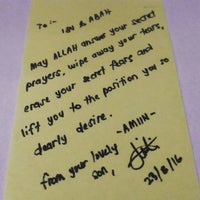 To :-
IBU & ABAH
May ALLAH answer your secret
prayers, wipe away your tears,
erase your secret fears and
lift you to the position you so
dearly desire.
-AMIIN-
from your lovely
son,
23/8/16